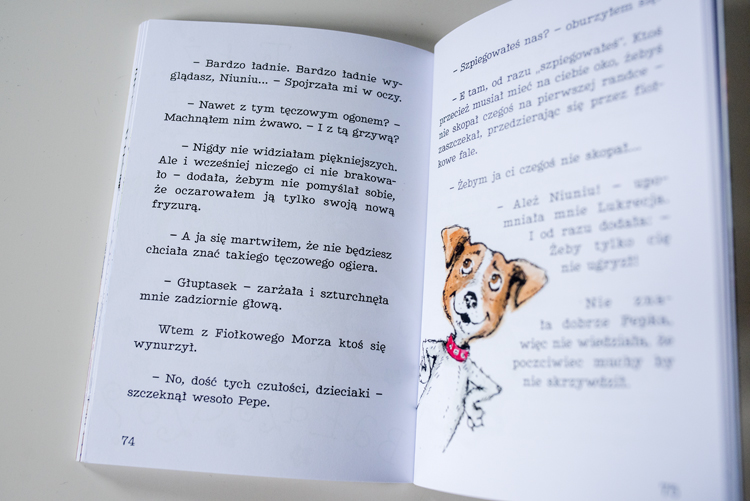 – Bardzo ładnie. Bardzo ładnie wy-
glądasz, Niuniu... – Spojrzała mi w oczy.
– Nawet z tym tęczowym ogonem? –
Machnąłem nim żwawo. – I z tą grzywą?
– Nigdy nie widziałam piękniejszych.
Ale i wcześniej niczego ci nie brakowa-
ło – dodała, żebym nie pomyślał sobie,
że oczarowałem ją tylko swoją nową
fryzurą.
– A ja się martwiłem, że nie będziesz
chciała znać takiego tęczowego ogiera.
– Głuptasek – zarżała i szturchnęła
mnie zadziornie głową.
Wtem z Fiołkowego Morza ktoś się
wynurzył.
– No, dość tych czułości, dzieciaki –
szczeknął wesoło Pepe.
74
– Szpiegowałeś nas? – oburzyłem się.
– E tam, od razu „szpiegowałeś”. Ktoś
przecież musiał mieć na ciebie oko, żebyś
nie skopał czegoś na pierwszej randce –
zaszczekał, przedzierając się przez fioł-
kowe fale.
– Żebym ja ci czegoś nie skopał...
– Ależ Niuniu! – upo-
mniała mnie Lukrecja.
I od razu dodała: –
Żeby tylko cię
nie ugryzł!
Nie zna-
ła dobrze Pepka,
więc nie wiedziała, że
poczciwiec muchy by
nie skrzywdził.